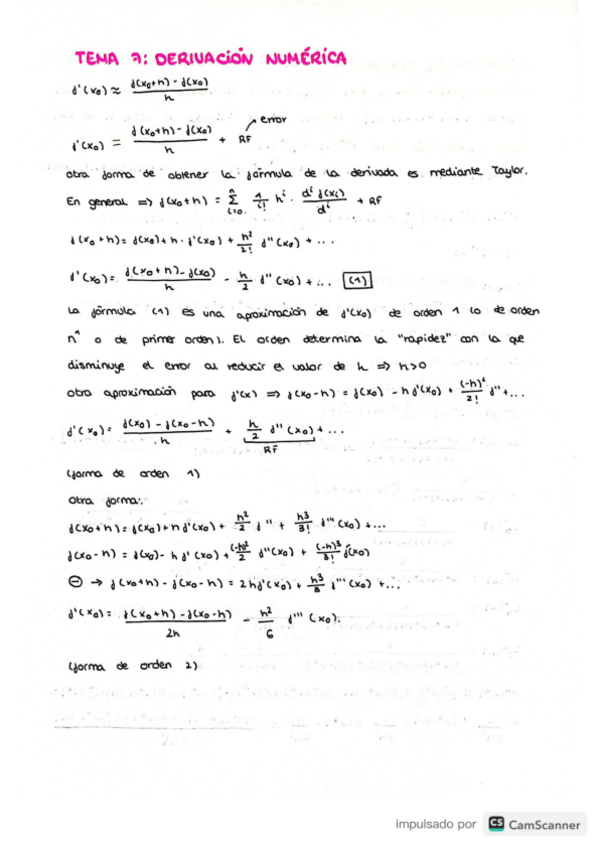 TEMA 7: DERIVACIÓN NUMÉRICA
f'(x₀) ≈ (f(x₀+h) - f(x₀)) / h
f'(x₀) = (f(x₀+h) - f(x₀)) / h + RF → error
otra forma de obtener la fórmula de la derivada es mediante Taylor.
En general => f(x₀+h) = Σ_{i=0}^{n} 1/i! h^i · d^i f(x_i) / d^i + RF
f(x₀+h) = f(x₀) + h · f'(x₀) + h²/2! f''(x₀) + ...
f'(x₀) = (f(x₀+h) - f(x₀)) / h - h/2 f''(x₀) + ... (1)
La fórmula (1) es una aproximación de f'(x₀) de orden 1 (o de orden
h¹ o de primer orden). El orden determina la "rapidez" con la que
disminuye el error al reducir el valor de h => h>0
otra aproximación para f'(x) => f(x₀-h) = f(x₀) - h f'(x₀) + (-h)²/2! f'' + ...
f'(x₀) = (f(x₀) - f(x₀-h)) / h + h/2 f''(x₀) + ...
RF
(forma de orden 1)
Otra forma:
f(x₀+h) = f(x₀) + h f'(x₀) + h²/2 f'' + h³/3! f'''(x₀) + ...
f(x₀-h) = f(x₀) - h f'(x₀) + (-h)²/2 f''(x₀) + (-h)³/3! f(x₀)
⊖ → f(x₀+h) - f(x₀-h) = 2h f'(x₀) + h³/3 f'''(x₀) + ...
f'(x₀) = (f(x₀+h) - f(x₀-h)) / 2h - h²/6 f'''(x₀).
(forma de orden 2)
impulsado por CS CamScanner